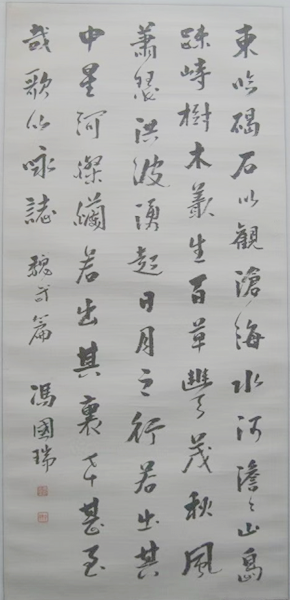 東臨碣石以觀滄海水河澹〻山島
踈峙樹木叢生百草豐茂秋風
蕭瑟洪波湧起日月之行若出其
中星河燦爛若出其裏幸甚至
哉歌以咏誌 魏武篇 馮國瑞